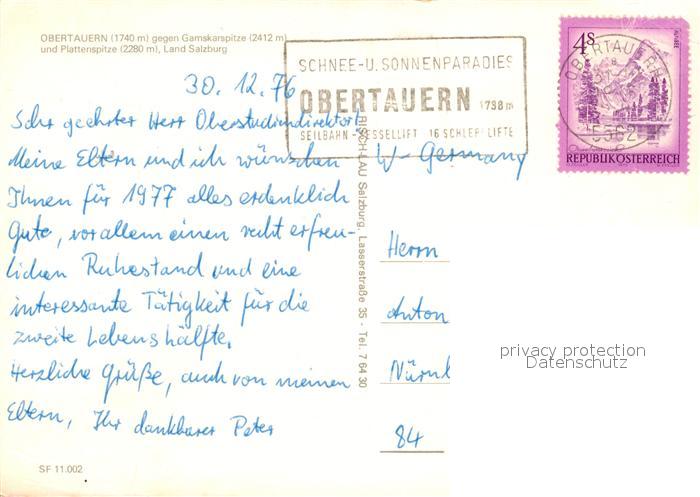 OBERTAUERN (1740 m) gegen Gamskarspitze (2412 m)
und Plattenspitze (2280 m), Land Salzburg
30. 12. 76
Sehr geehrter Herr Oberstudiendirektor!
Meine Eltern und ich wünschen
Ihnen für 1977 alles erdenklich
Gute, vor allem einen recht erfreu-
lichen Ruhestand und eine
interessante Tätigkeit für die
zweite Lebenshälfte.
Herzliche Grüße, auch von meinen
Eltern, Ihr dankbarer Peter
SF 11.002
SCHNEE-U. SONNENPARADIES
OBERTAUERN 1738 m
SEILBAHN-SESSELLIFT 16 SCHLEPPLIFTE
Salzburg, Lasserstraße 35 - Tel. 7 64 30
4S
ALMSEE
OBERTAUERN
5562
REPUBLIK ÖSTERREICH
W-Germany
Herrn
Anton
Nürnb
84
privacy protection
Datenschutz